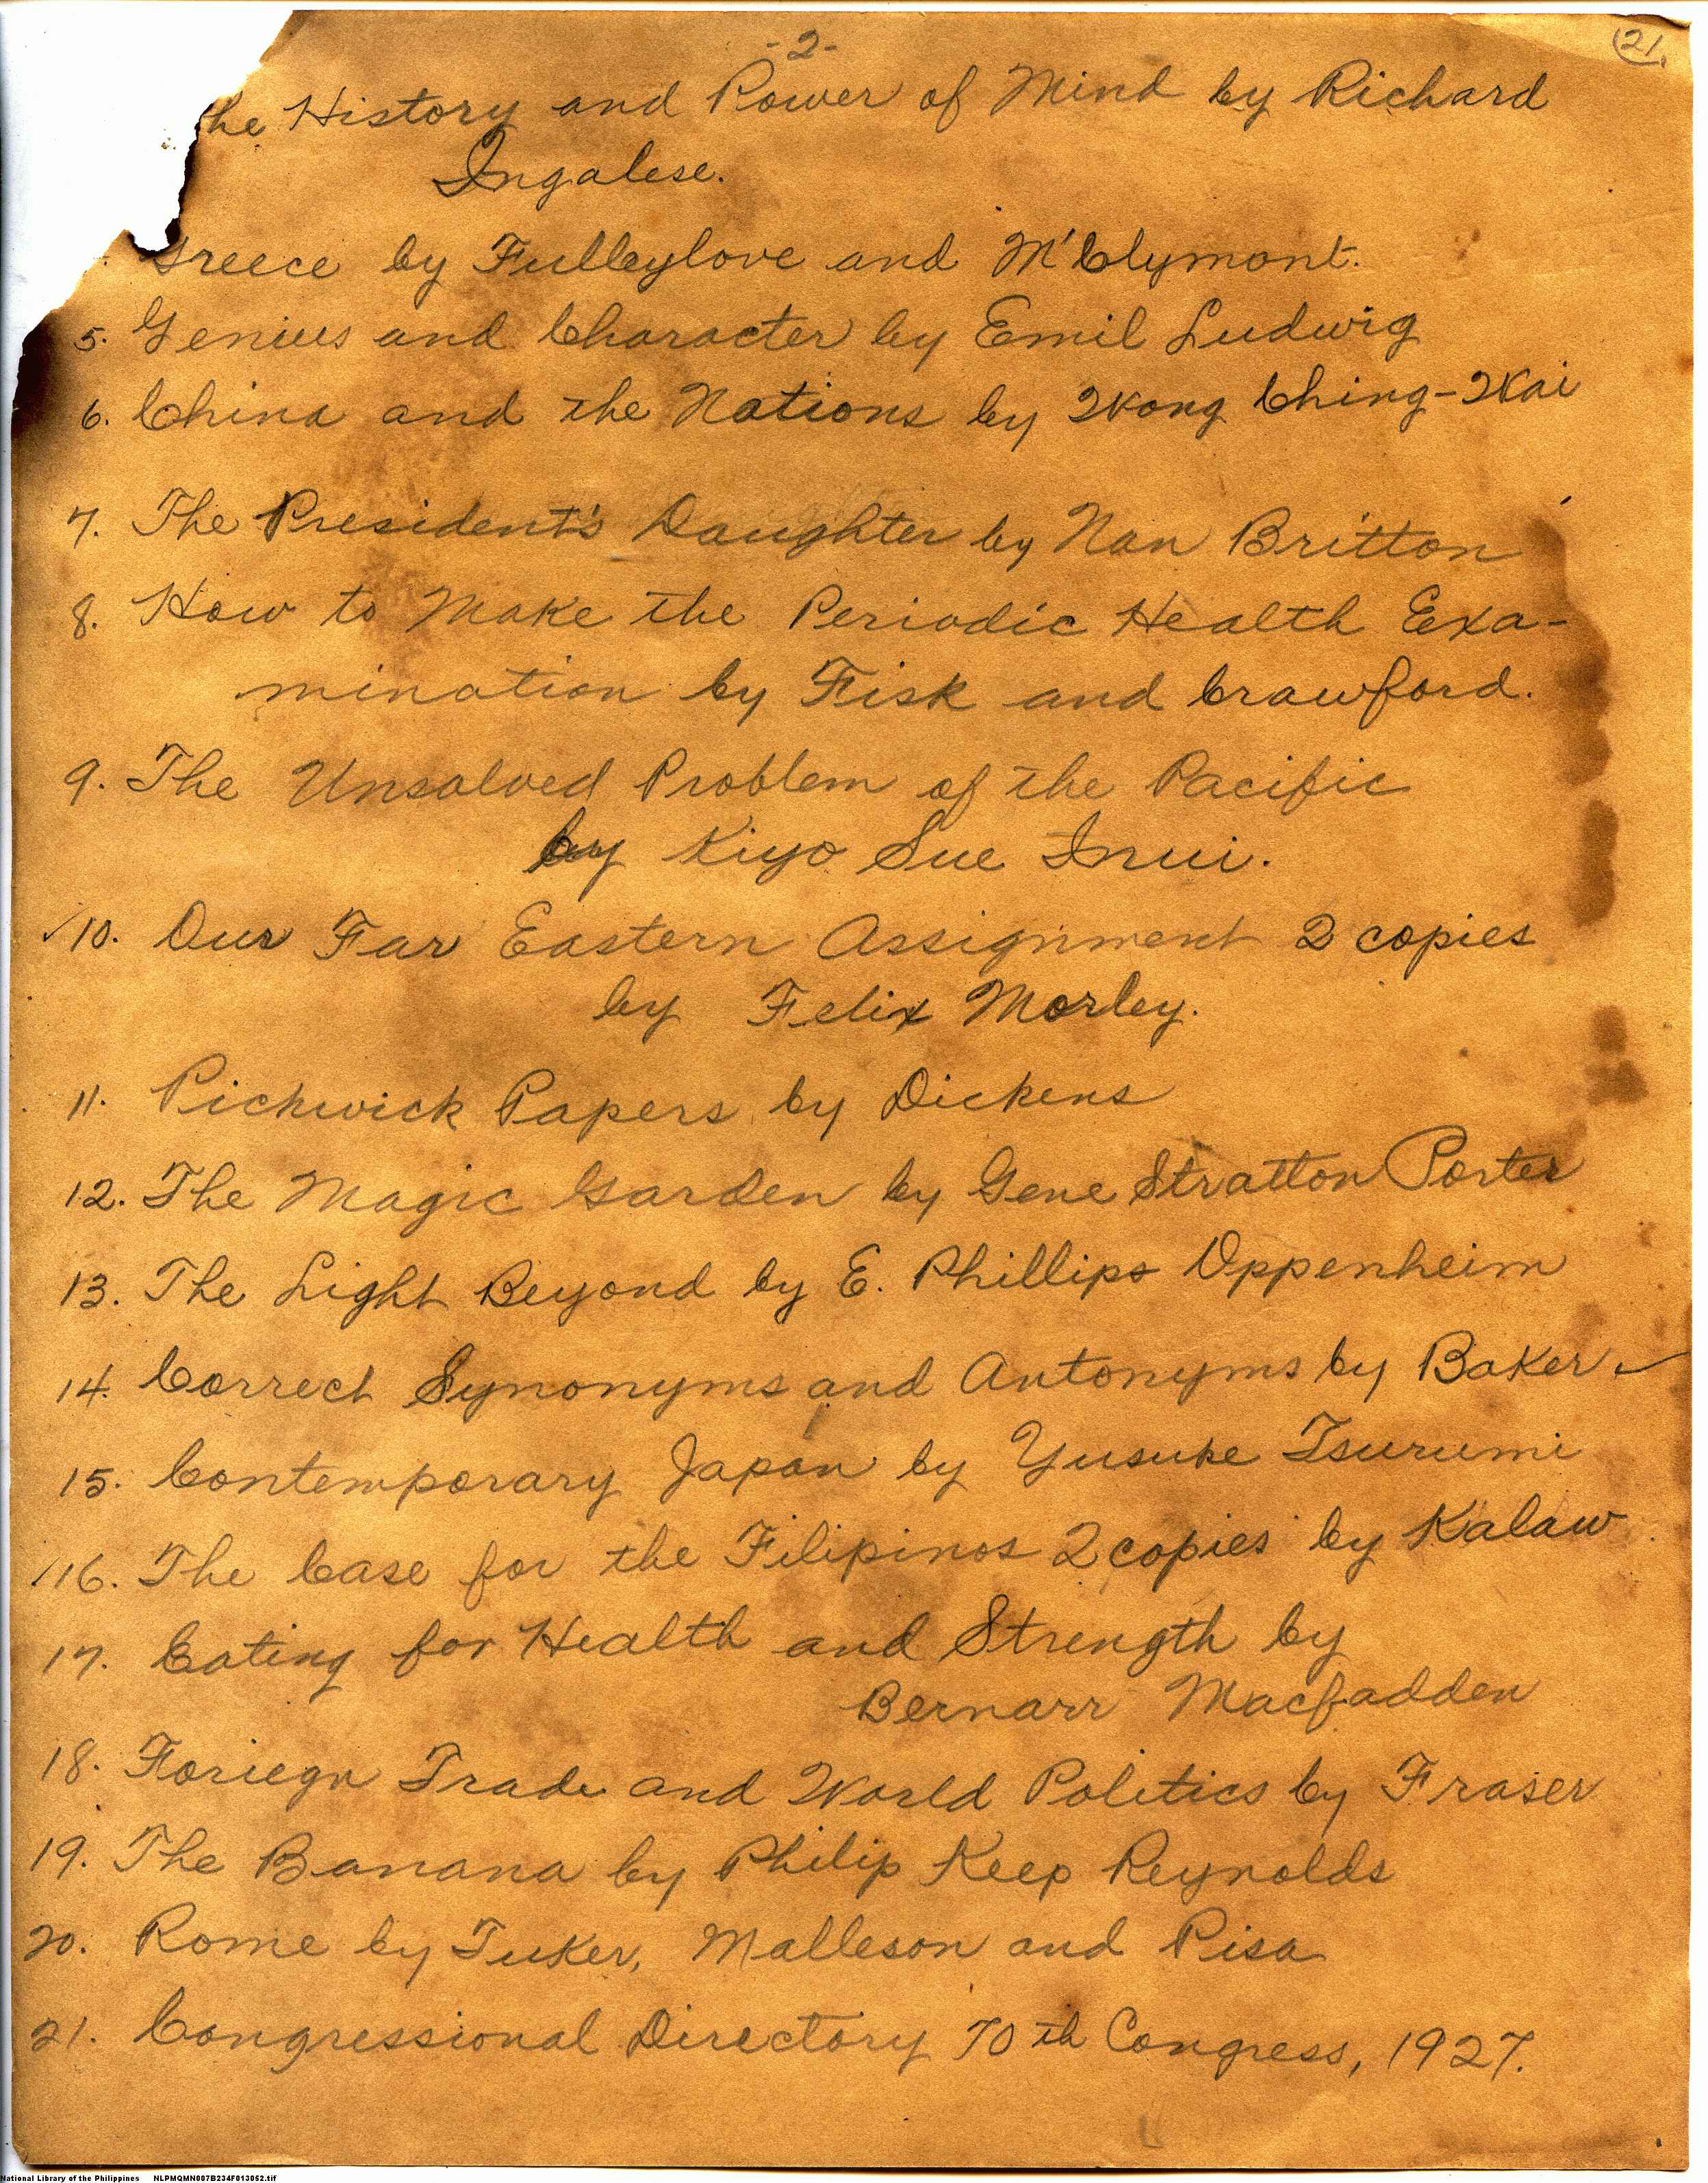 -2-
21.
he History and Power of Mind by Richard
Ingalese.
Greece by Fulleylove and M'Clymont.
5. Genius and Character by Emil Ludwig
6. China and the Nations by Wong Ching-Wai
7. The President's Daughter by Nan Britton
8. How to Make the Periodic Health Exa-
mination by Fisk and Crawford.
9. The Unsolved Problem of the Pacific
by Kiyo Sue Inui.
✓10. Our Far Eastern Assignment 2 copies
by Felix Morley.
11. Pickwick Papers by Dickens
12. The Magic Garden by Gene Stratton Porter
13. The Light Beyond by E. Phillips Oppenheim
14. Correct Synonyms and Antonyms by Baker ✓
15. Contemporary Japan by Yusuke Tsurumi
✓16. The Case for the Filipinos 2 copies by Kalaw
17. Eating for Health and Strength by
Bernarr Macfadden
18. Foriegn Trade and World Politics by Fraser
19. The Banana by Philip Keep Reynolds
20. Rome by Tuker, Malleson and Pisa
21. Congressional Directory 70th Congress, 1927.
National Library of the Philippines NLPMQMN007B234F013052.tif